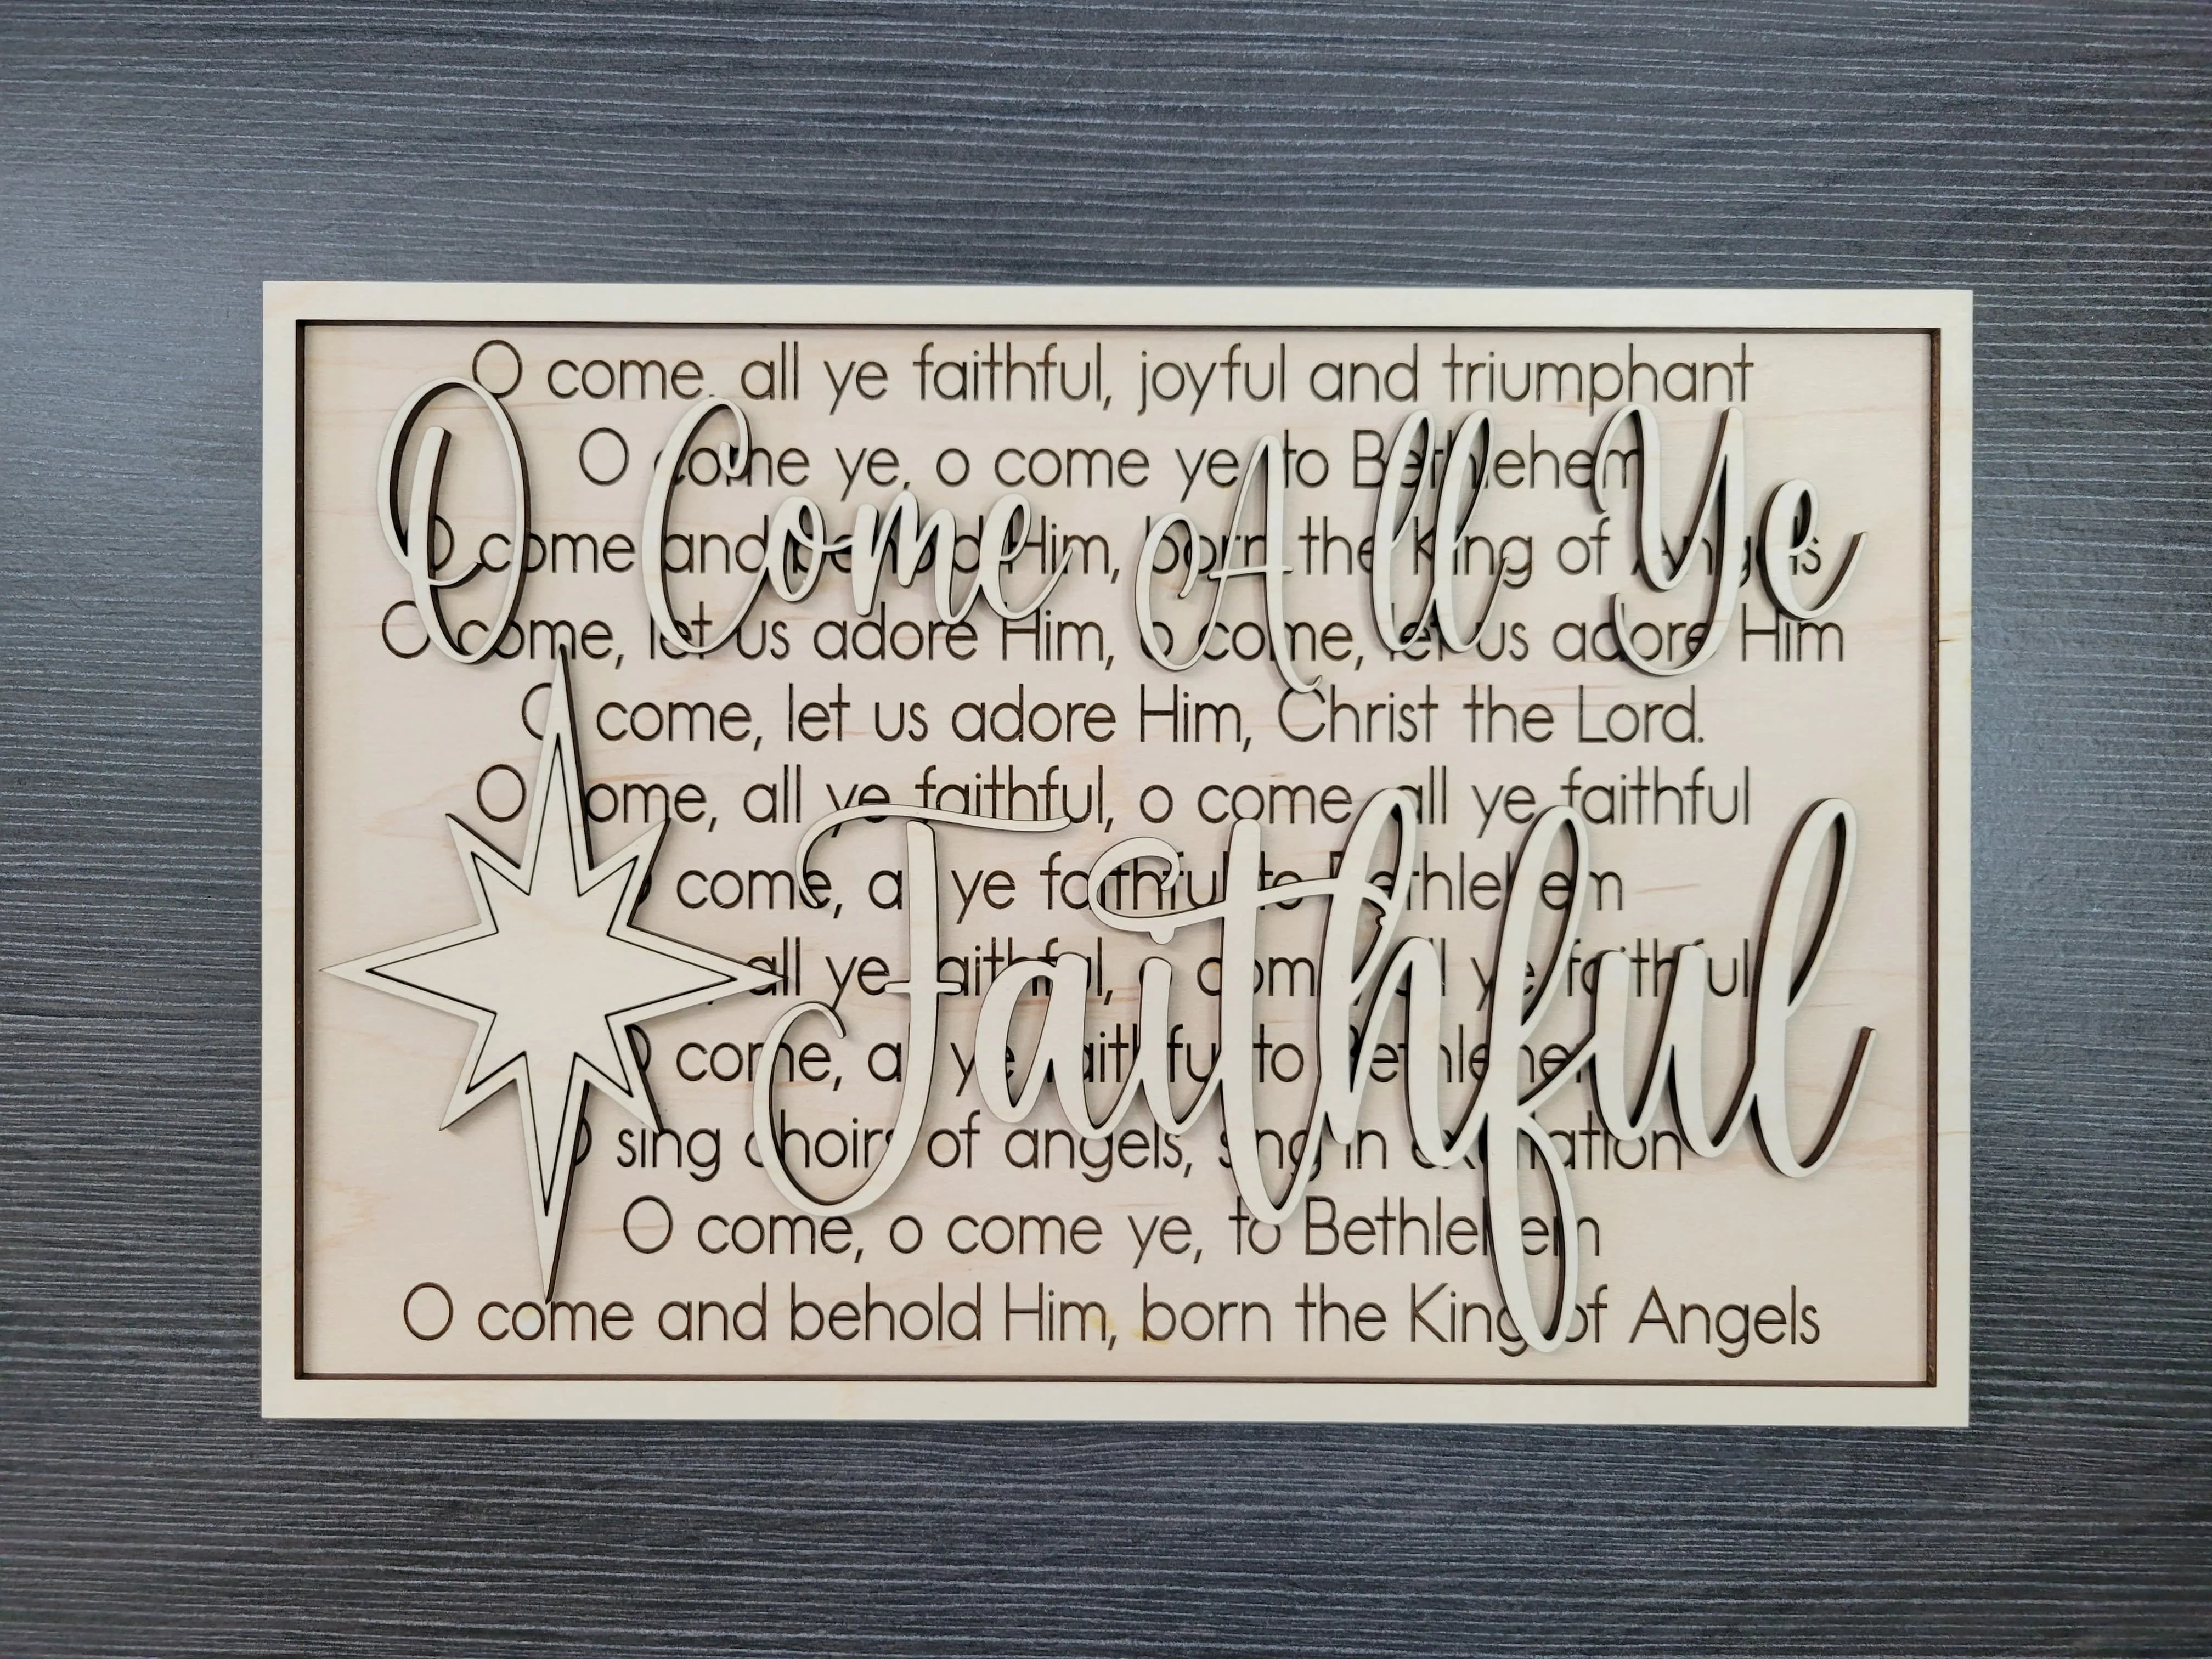 O come, all ye faithful, joyful and triumphant
O come ye, o come ye to Bethlehem
O come and behold Him, born the King of Angels
O come, let us adore Him, o come, let us adore Him
O come, let us adore Him, Christ the Lord.
O come, all ye faithful, o come, all ye faithful
O come, all ye faithful to Bethlehem
all ye faithful, o come, all ye faithful
O come, all ye faithful to Bethlehem
O sing choirs of angels, sing in exultation
O come, o come ye, to Bethlehem
O come and behold Him, born the King of Angels
O Come All Ye
Faithful